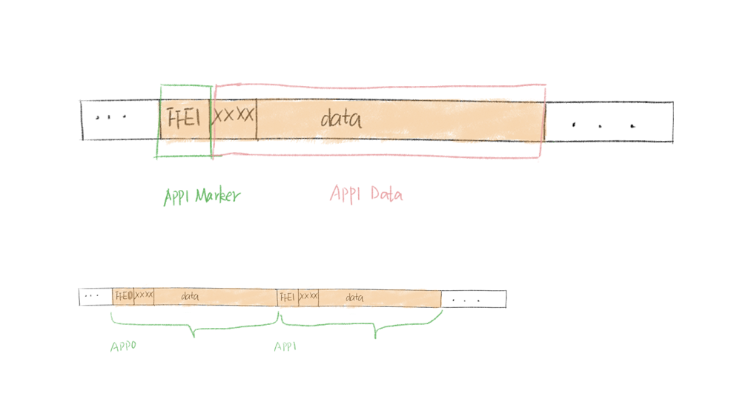 ... FFE1 XXXX data ...
APP1 Marker APP1 Data
... FFE0 XXXX data FFE1 XXXX data ...
APP0 APP1